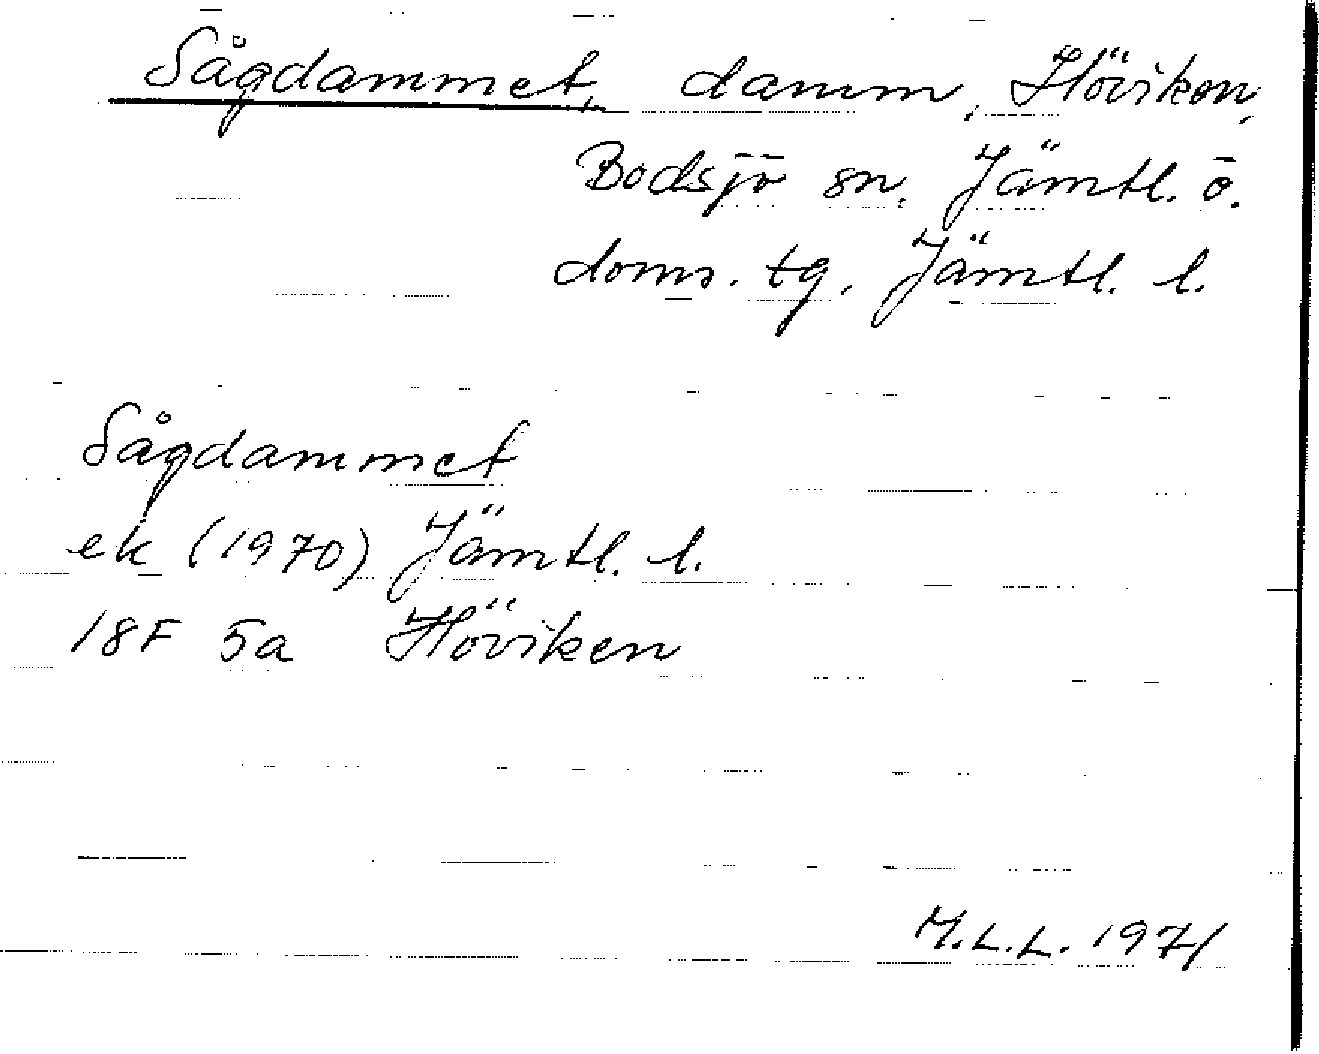 Sågdammet, damm, Höviken,
Bodsjö sn, Jämtl. ö.
doms. tg, Jämtl. l.
Sågdammet
ek (1970) Jämtl. l.
18F 5a Höviken
M.L.L. 1971